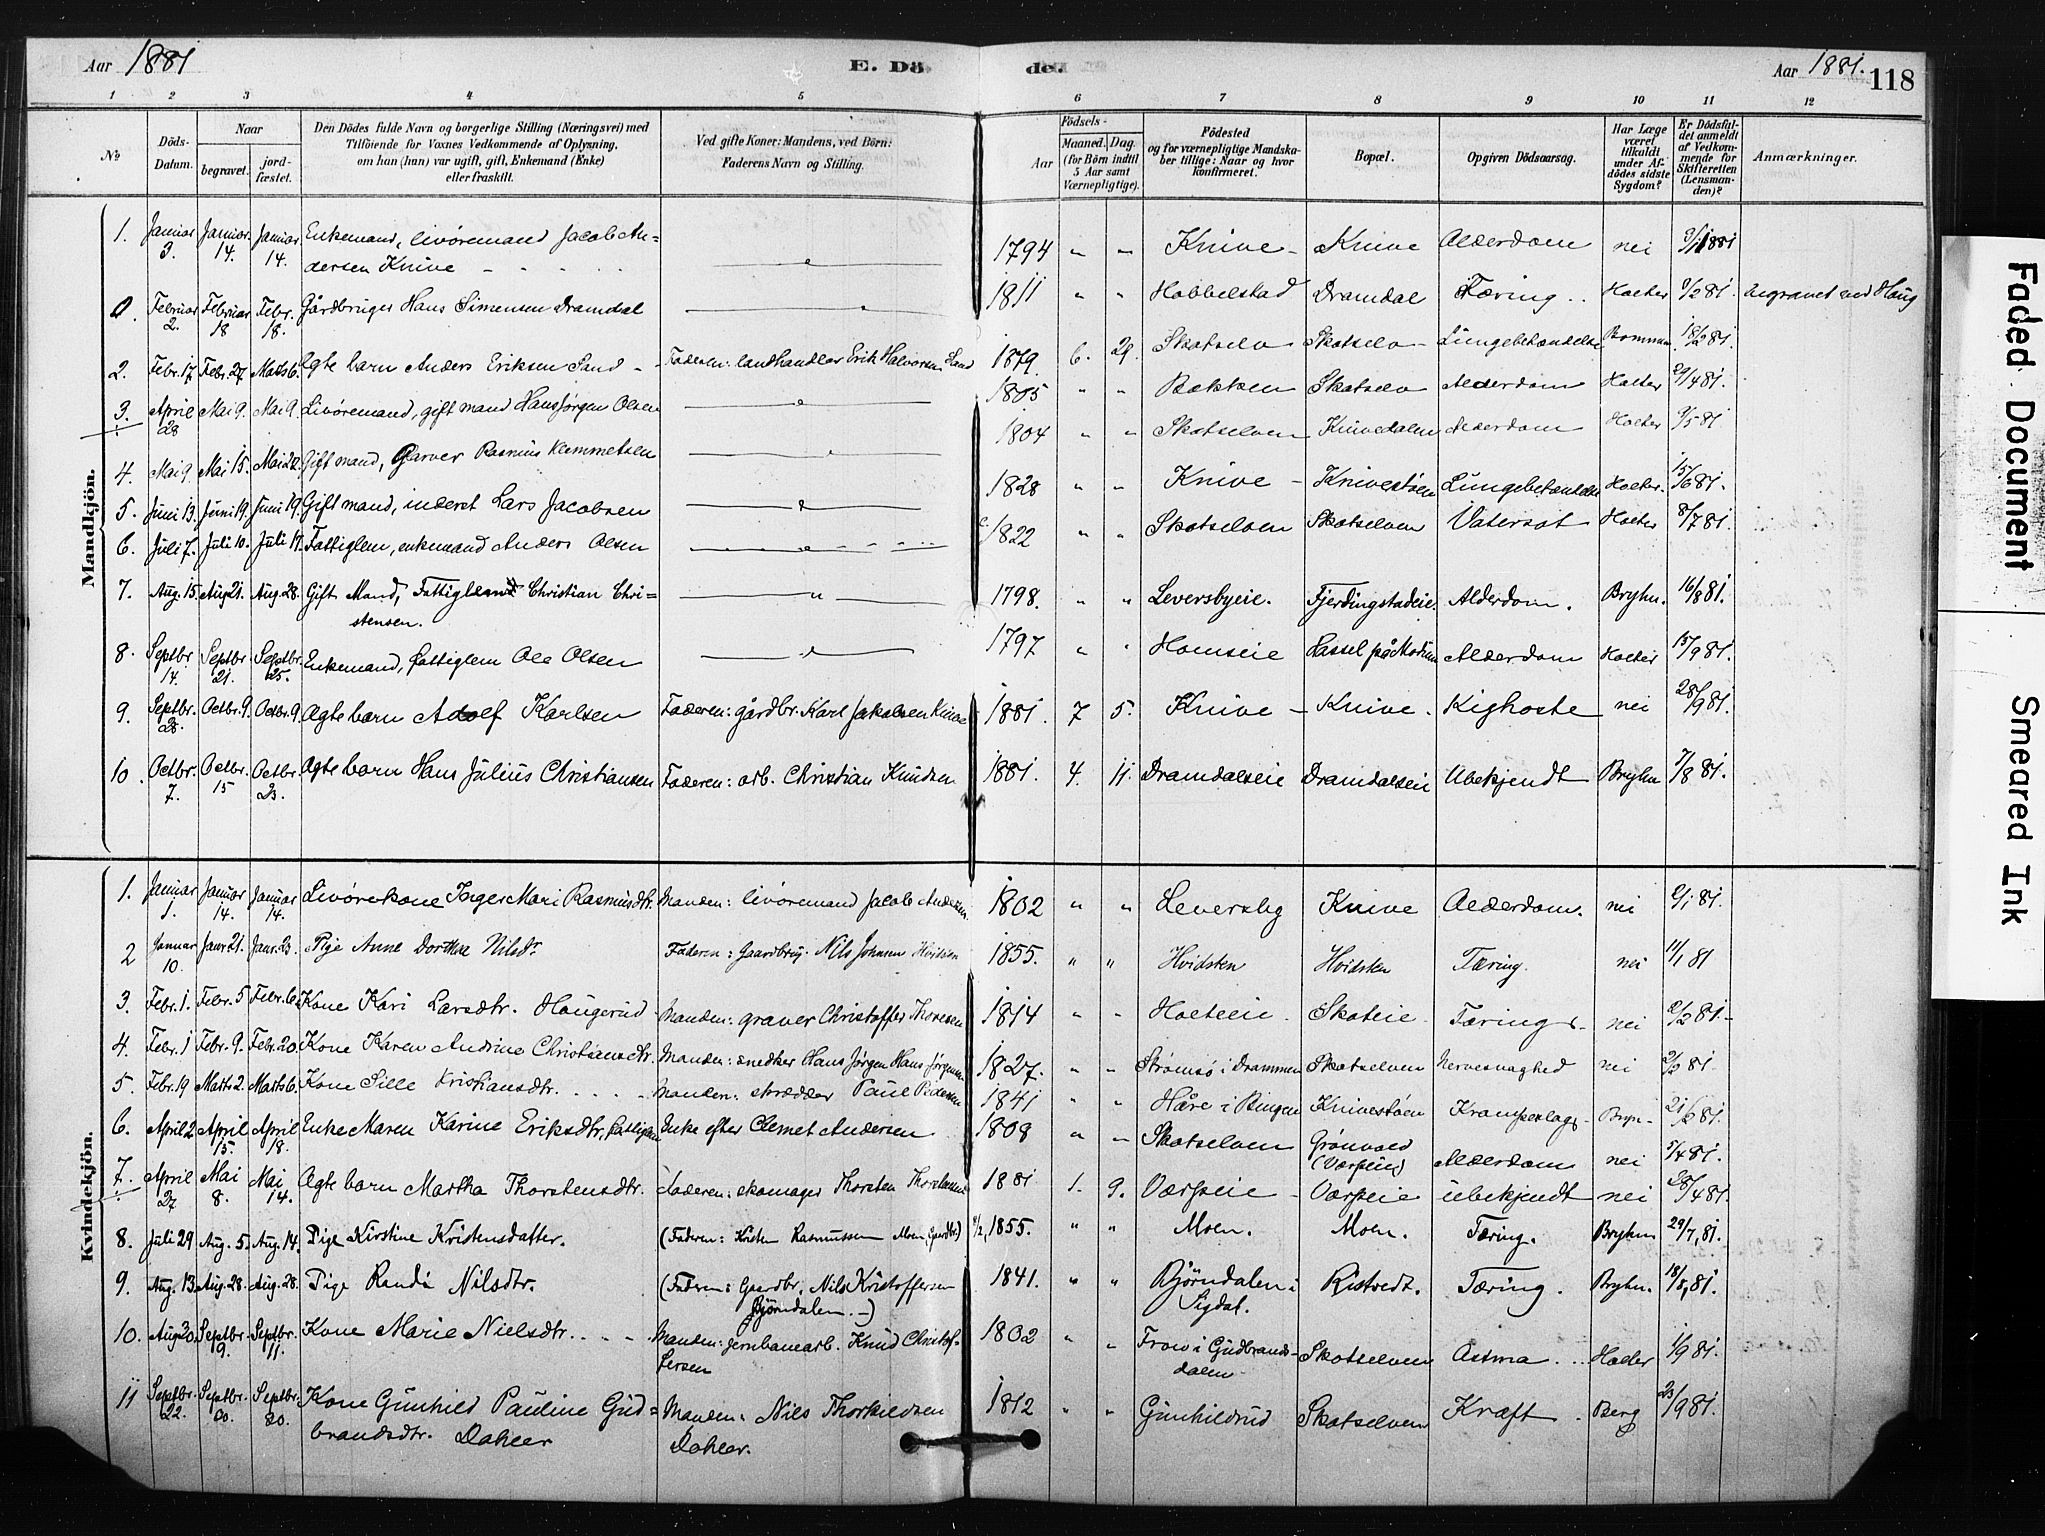 Aar 1881
E. Dö
de.
Aar 1881.
118
1 2 3 4 5 6 7 8 9 10 11 12
№
Döds-
Datum.
Naar
begravet.
jord-
fæstet.
Den Dödes fulde Navn og borgerlige Stilling (Næringsvei) med
Tilföiende for Voxnes Vedkommende af Oplysning,
om han (hun) var ugift, gift, Enkemand (Enke)
eller fraskilt.
Ved gifte Koner: Mandens, ved Börn:
Faderens Navn og Stilling.
Födsels-
Aar
Maaned.
Dag.
(for Börn indtil
5 Aar samt
Værnepligtige).
Födested
og for værnepligtige Mandska-
ber tillige: Naar og hvor
konfirmeret.
Bopæl.
Opgiven Dödsaarsag.
Har Læge
været
tilkaldt
under Af-
dödes sidste
Sygdom?
Er Dödsfal-
det anmeldt
af Vedkom-
mende for
Skifteretten
(Lensman-
den)?
Anmærkninger.
Mandkjön.
1. Januar 3. Januar 14. Januar 14. Enkemand, livøremand Jacob An=
dersen Knive 1794 " " Knive Knive Alderdom nei 3/1 1881
0. Februar 2. Februar 18 Febr. 18. Gårdbruger Hans Simensen Dramdal 1811 " " Hobbelstad Dramdal Tæring Holter 9/2 81. begravet ved Haug
2. Febr. 17 Febr. 27 Marts 6. Ægte barn Anders Eriksen Sand Faderen: landhandler Erik Halvorsen Sand 1879. 6. 29. Skotselv Skotselv Lungebetændelse 18/2 81.
3. April 28 Mai 9. Mai 9. Livøremand, gift mand Hans Jørgen Olsen 1805 " " Bakken Skotselv Alderdom Holter 29/4 81.
4. Mai 9. Mai 15. Mai 22. Gift mand, Garver Rasmus Klemmetsen 1804 " " Skotselven Knivedalen Alderdom Holter 9/5 81
5. Juni 13. Juni 19. Juni 19. Gift mand, inderst Lars Jacobsen 1828 " " Knive Knivestøen Lungebetændelse Holter. 15/6 81.
6. Juli 7. Juli 10. Juli 17. Fattiglem, enkemand Anders Olsen 1822 " " Skotselven Skotselven Vatersot Holter 8/7 81.
7. Aug. 15. Aug 21. Aug. 28. Gift Mand, Fattiglem Christian Chri=
stensen. 1798. " " Leversbyeie. Fjerdingstadeie. Alderdom. Bryhn. 16/8 81.
8. Septbr. 14. Septbr. 21. Septbr. 25. Enkemand, fattiglem Ole Olsen 1797 " " Homseie Lassel på Modum Alderdom Holter 15/9 81.
9. Septbr. 28. Octbr. 9. Octbr. 9. Ægte barn Adolf Karlsen Faderen: gårdbr. Karl Jakobsen Knive 1881. 7 5. Knive Knive. Kighoste nei 28/9 81.
10. Octbr. 7. Octbr. 15 Octbr. 23. Ægte barn Hans Julius Christiansen Faderen: arb. Christian Knudsen 1881. 4. 11. Dramdalseie Dramdalseie Ubekjendt Bryhn 7/8 81.
Kvindekjön.
1. Januar 1. Januar 14. Januar 14. Livørekone Inger Mari Rasmusdtr. Manden: livøremand Jacob Andersen 1802 " " Leversby Knive Alderdom. nei 81.
2 Januar 10. Janr 21. Janr. 23. Pige Anne Dorthea Nilsdr Faderen: Gaardbrug. Nils Johnsen Hvidsten 1855. " " Hvidsten Hvidsten Tæring. nei 11/1 81
3. Febr. 1. Febr. 5 Febr. 6. Kone Kari Larsdtr. Haugerud Manden: graver Christoffer Thoresen 1814 " " Holteie Skoteie Tæring nei 2/2 81.
4. Febr. 1 Febr. 9. Febr. 20 Kone Karen Andrine Christiansdtr. Manden: snedker Hans Jørgen Hans Jørgensen 1827. " " Strømsø i Drammen Skotselven Nervesvaghed nei 2/2 81.
5. Febr. 19 Marts 2. Marts 6. Kone Sille Kristiansdtr. Manden: skrædder Paul Pedersen 1841 " " Håre i Bingen Knivestøen Krampeslag Bryn 21/2 81.
6. April 2 April 15. April 18. Enke Maren Karine Eriksdtr, fattiglem Enke efter Clemet Andersen 1808 " " Skotselven Grønvold Alderdom nei 5/4 81.
7. April 27 Mai 8. Mai 14. Ægte barn Martha Thorstensdtr. Faderen: skomager Thorsten Thorstensen 1881 1. 9. Værpeie Værpeie ubekjendt nei 28/4 81.
8. Juli 29 Aug. 5. Aug. 14. Pige Kirstine Kristensdatter. (Faderen: Kristen Rasmussen Moen Gaardbr.) 1855. " " Moen. Moen. Tæring. Bryhn 29/7, 81.
9. Aug. 13 Aug. 28. Aug. 28. Pige Randi Nilsdtr. (Faderen: Gaardbr. Nils Kristoffersen
Bjørndalen.) 1841. " " Bjørndalen i
Sigdal. Ristvedt. Tæring. Bryhn. 18/8, 81.
10. Aug 30. Septbr. 9. Septbr. 11. Kone Marie Nielsdtr. Manden: jernbanearb. Knud Christof-
fersen 1802 " " Fron i Gudbrands-
dalen Skotselven Astma Holter 1/9 81.
11 Septbr. 22. Septbr. 30. Septbr. 30. Kone Gunhild Pauline Gud=
brandsdtr. Dahler Manden: Nils Thorkildsen
Dahler. 1812 " " Gunhildrud Skotselven Kræft Berg 23/9 81.
Faded Document
Smeared Ink